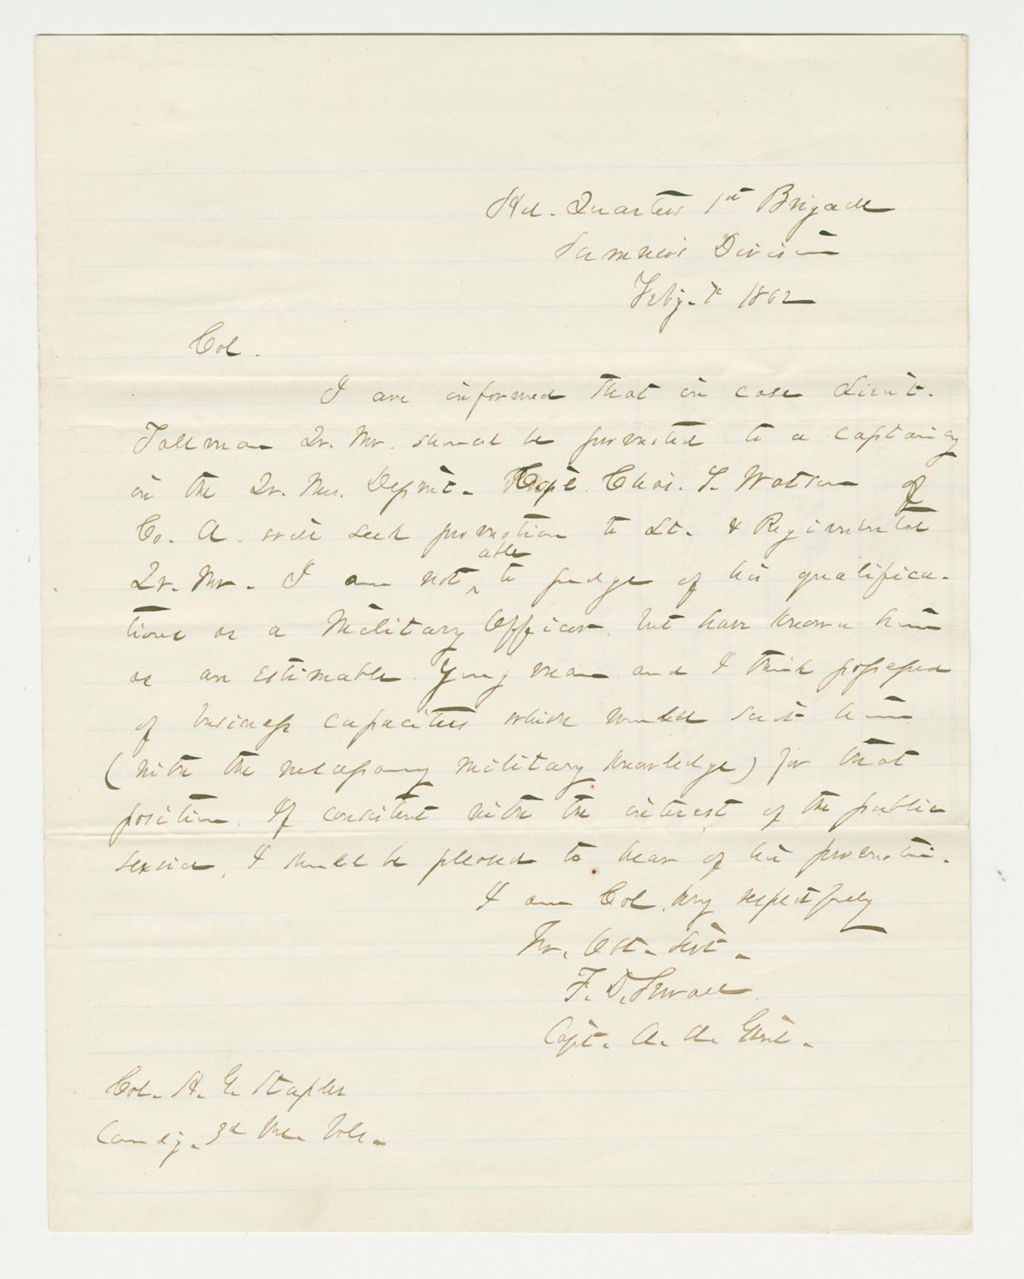 Hd. Quarters 1st Brigade
Sumner's Division
Feby. 7th 1862
Col.
I am informed that in case Lieut.
Tallman Qr. Mr. should be promoted to a captaincy
in the Qr. Mrs. Depmt. Chas. S. Watson of
Co. A. will seek promotion to Lt. & Regimental
Qr. Mr. I am not able to judge of his qualifica-
tions as a Military Officer but have known him
as an estimable Young man and I think possessed
of business capacities which would suit him
(with the necessary military knowledge) for that
position. If consistent with the interest of the public
service, I should be pleased to hear of his promotion.
I am Col. Very respectfully
Yr. Obt. Sert.
F. D. Sewall
Capt. A. A. Genl.
Col. H. G. Staples
Comdg. 3d Me. Vols.